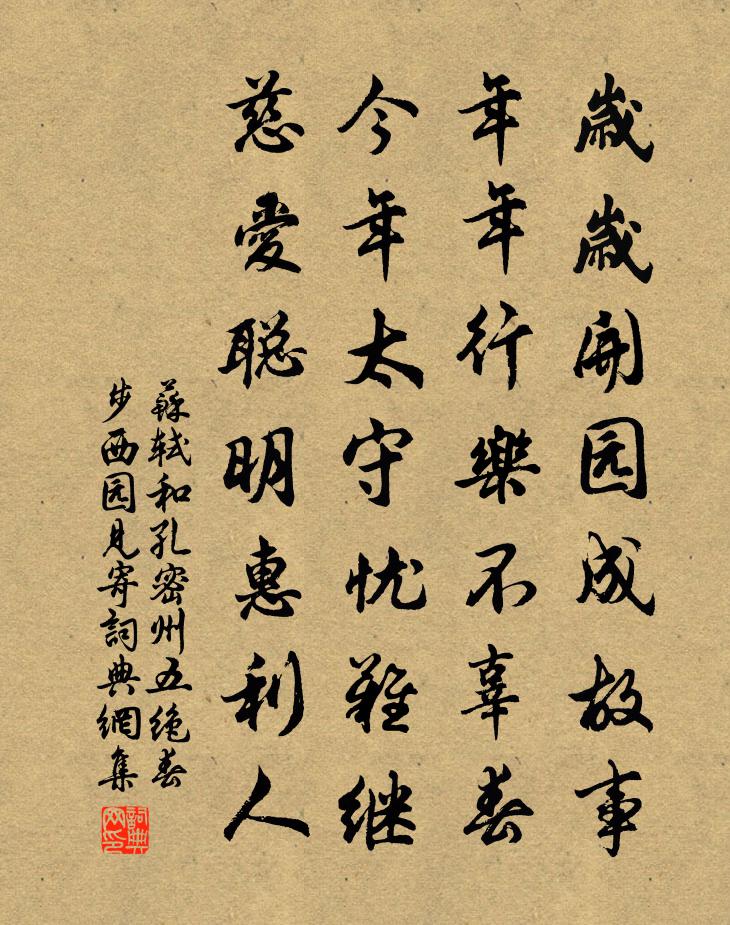 歲歲開园成故事
年年行樂不辜春
今年太守忧難继
慈愛聪明惠利人
蘇軾和孔密州五绝春
步西园見寄詞典網集
詞典网印